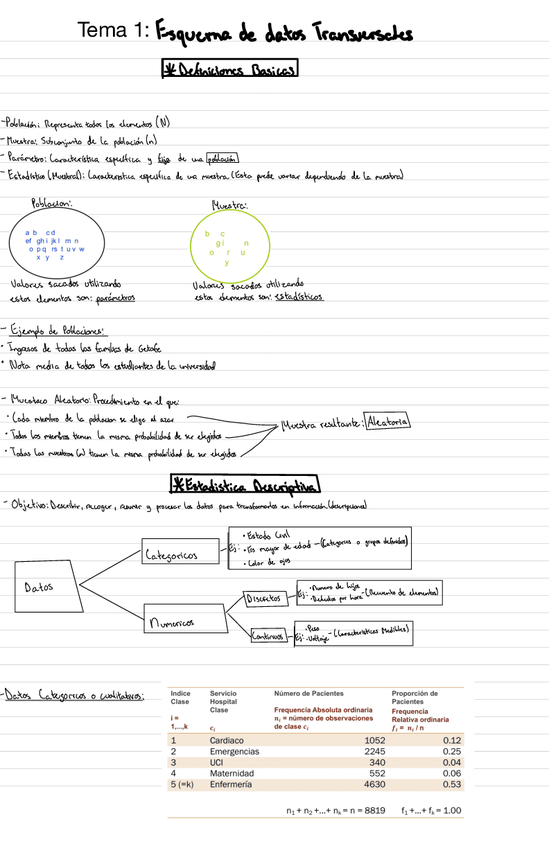 Tema 1: Esquema de datos Transversales
* Definiciones Basicas
- Población: Representa todos los elementos (N)
- Muestra: Subconjunto de la población (n)
- Parámetro: Característica específica y fija de una población
- Estadístico (Muestral): Característica específica de una muestra (Esta puede variar dependiendo de la muestra)
Poblacion:
a b cd
ef ghi jkl m n
o pq rs t u v w
x y z
Valores sacados utilizando
estos elementos son: parámetros
Muestra:
b c
gi n
o r u
y
Valores sacados utilizando
estos elementos son: estadísticos
- Ejemplo de Poblaciones:
• Ingresos de todas las familias de Getafe
• Nota media de todos los estudiantes de la universidad
- Muestreo Aleatorio: Procedimiento en el que:
• Cada miembro de la poblacion se elige al azar
• Todos los miembros tienen la misma probabilidad de ser elegidos
• Todas las muestras (n) tienen la misma probabilidad de ser elegidos
Muestra resultante: Aleatoria
* Estadistica Descriptiva
- Objetivo: Describir, recoger, resumir y procesar los datos para transformarlos en información (descripciones)
Datos
Categoricos
Ej:
• Estado Civil
• Es mayor de edad - (Categorias o grupos definidos)
• Color de ojos
Numericos
Discretos
Ej:
• Numero de hijos
• por hora - (Recuento de elementos)
Continuos
Ej:
• Peso
• Voltaje - (Características Medibles)
- Datos Categoricos o cualitativos:
Indice Clase i = 1,...,k
Servicio Hospital Clase cᵢ
Número de Pacientes Frecuencia Absoluta ordinaria nᵢ = número de observaciones de clase cᵢ
Proporción de Pacientes Frecuencia Relativa ordinaria fᵢ = nᵢ / n
1 Cardiaco 1052 0.12
2 Emergencias 2245 0.25
3 UCI 340 0.04
4 Maternidad 552 0.06
5 (=k) Enfermería 4630 0.53
n₁ + n₂ +...+ nₖ = n = 8819 f₁ +...+ fₖ = 1.00